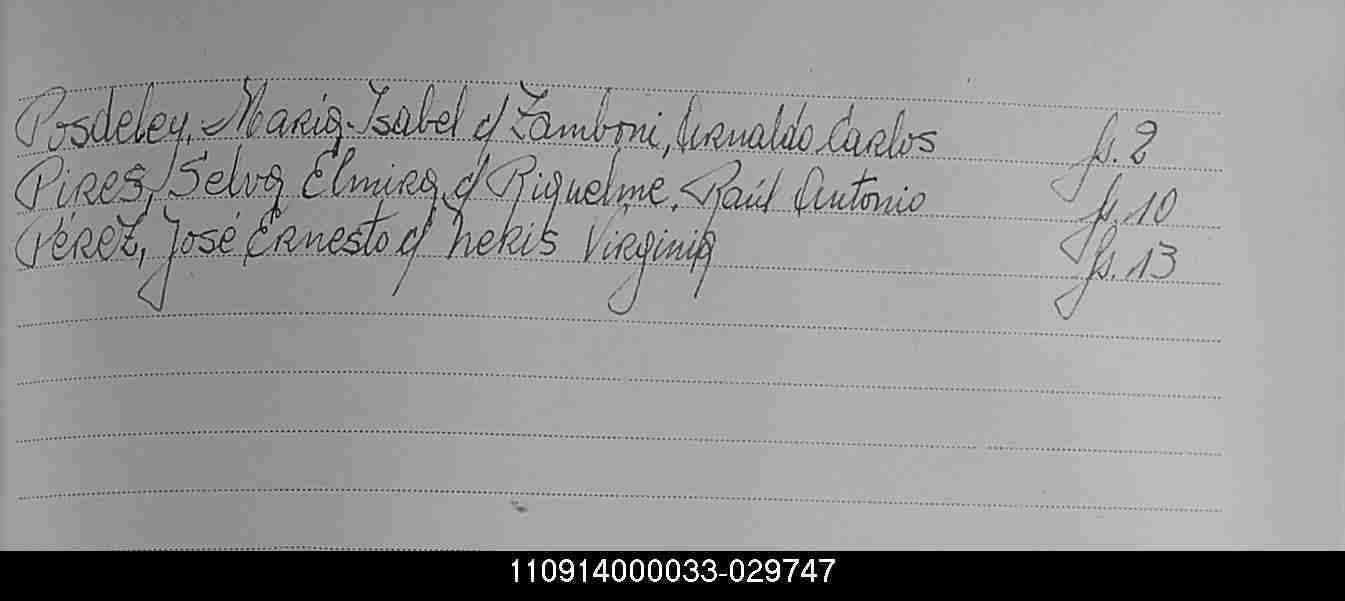 Posdeley, María Isabel c/ Zamboni, Arnaldo Carlos fs. 2
Pires, Selva Elmira c/ Riquelme, Raúl Antonio fs. 10
Pérez, José Ernesto c/ Neris Virginia fs. 13
110914000033-029747